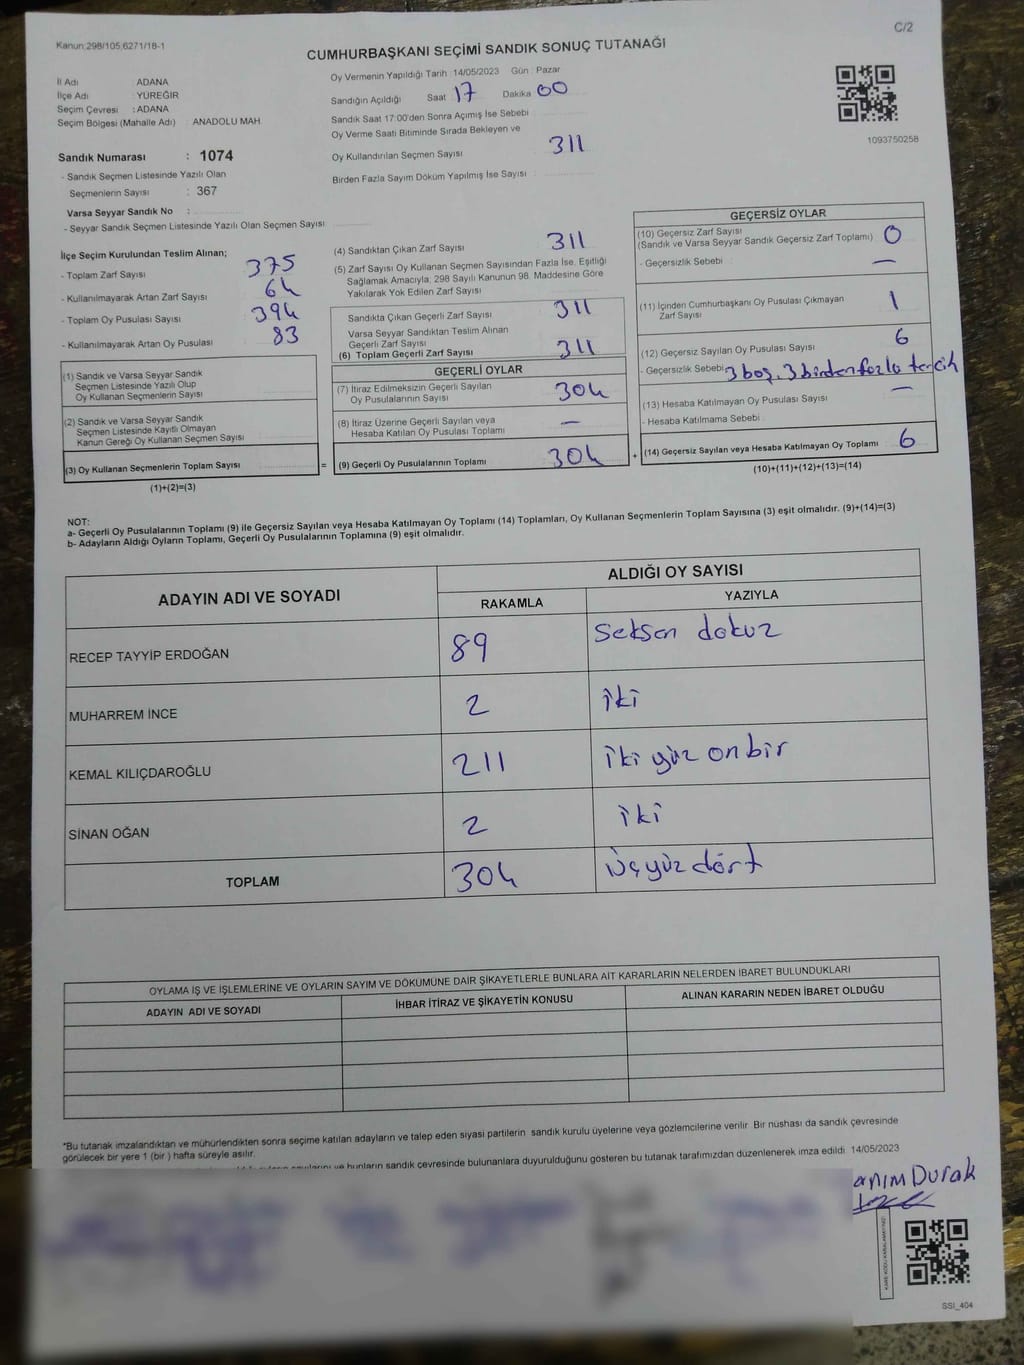 Kanun:298/105;6271/18-1
C/2
CUMHURBAŞKANI SEÇİMİ SANDIK SONUÇ TUTANAĞI
İl Adı : ADANA
İlçe Adı : YÜREĞİR
Seçim Çevresi : ADANA
Seçim Bölgesi (Mahalle Adı) : ANADOLU MAH.
Oy Vermenin Yapıldığı Tarih :14/05/2023 Gün : Pazar
Sandığın Açıldığı Saat 17 Dakika 00
Sandık Saat 17:00'den Sonra Açımış İse Sebebi
Oy Verme Saati Bitiminde Sırada Bekleyen ve
Oy Kullandırılan Seçmen Sayısı 311
Birden Fazla Sayım Döküm Yapılmış İse Sayısı :
1093750258
Sandık Numarası : 1074
- Sandık Seçmen Listesinde Yazılı Olan
Seçmenlerin Sayısı : 367
Varsa Seyyar Sandık No :
- Seyyar Sandık Seçmen Listesinde Yazılı Olan Seçmen Sayısı
İlçe Seçim Kurulundan Teslim Alınan;
- Toplam Zarf Sayısı 375
- Kullanılmayarak Artan Zarf Sayısı 64
- Toplam Oy Pusulası Sayısı 394
- Kullanılmayarak Artan Oy Pusulası 83
(1) Sandık ve Varsa Seyyar Sandık
Seçmen Listesinde Yazılı Olup
Oy Kullanan Seçmenlerin Sayısı
(2) Sandık ve Varsa Seyyar Sandık
Seçmen Listesinde Kayıtlı Olmayan
Kanun Gereği Oy Kullanan Seçmen Sayısı
(3) Oy Kullanan Seçmenlerin Toplam Sayısı =
(1)+(2)=(3)
(4) Sandıktan Çıkan Zarf Sayısı 311
(5) Zarf Sayısı Oy Kullanan Seçmen Sayısından Fazla İse, Eşitliği
Sağlamak Amacıyla; 298 Sayılı Kanunun 98. Maddesine Göre
Yakılarak Yok Edilen Zarf Sayısı
Sandıkta Çıkan Geçerli Zarf Sayısı 311
Varsa Seyyar Sandıktan Teslim Alınan
Geçerli Zarf Sayısı
(6) Toplam Geçerli Zarf Sayısı 311
GEÇERLİ OYLAR
(7) İtiraz Edilmeksizin Geçerli Sayılan
Oy Pusulalarının Sayısı 304
(8) İtiraz Üzerine Geçerli Sayılan veya
Hesaba Katılan Oy Pusulası Toplamı —
(9) Geçerli Oy Pusulalarının Toplamı 304 +
GEÇERSİZ OYLAR
(10) Geçersiz Zarf Sayısı
(Sandık ve Varsa Seyyar Sandık Geçersiz Zarf Toplamı) 0
- Geçersizlik Sebebi : —
(11) İçinden Cumhurbaşkanı Oy Pusulası Çıkmayan
Zarf Sayısı 1
(12) Geçersiz Sayılan Oy Pusulası Sayısı 6
- Geçersizlik Sebebi : 3 boş, 3 birden fazla tercih
(13) Hesaba Katılmayan Oy Pusulası Sayısı —
- Hesaba Katılmama Sebebi :
(14) Geçersiz Sayılan veya Hesaba Katılmayan Oy Toplamı 6
(10)+(11)+(12)+(13)=(14)
NOT:
a- Geçerli Oy Pusulalarının Toplamı (9) ile Geçersiz Sayılan veya Hesaba Katılmayan Oy Toplamı (14) Toplamları, Oy Kullanan Seçmenlerin Toplam Sayısına (3) eşit olmalıdır. (9)+(14)=(3)
b- Adayların Aldığı Oyların Toplamı, Geçerli Oy Pusulalarının Toplamına (9) eşit olmalıdır.
ADAYIN ADI VE SOYADI
ALDIĞI OY SAYISI
RAKAMLA YAZIYLA
RECEP TAYYİP ERDOĞAN 89 Seksen dokuz
MUHARREM İNCE 2 iki
KEMAL KILIÇDAROĞLU 211 iki yüz on bir
SİNAN OĞAN 2 iki
TOPLAM 304 üçyüz dört
OYLAMA İŞ VE İŞLEMLERİNE VE OYLARIN SAYIM VE DÖKÜMÜNE DAİR ŞİKAYETLERLE BUNLARA AİT KARARLARIN NELERDEN İBARET BULUNDUKLARI
ADAYIN ADI VE SOYADI İHBAR İTİRAZ VE ŞİKAYETİN KONUSU ALINAN KARARIN NEDEN İBARET OLDUĞU
*Bu tutanak imzalandıktan ve mühürlendikten sonra seçime katılan adayların ve talep eden siyasi partilerin sandık kurulu üyelerine veya gözlemcilerine verilir. Bir nüshası da sandık çevresinde
görülecek bir yere 1 (bir ) hafta süreyle asılır.
ve bunların sandık çevresinde bulunanlara duyurulduğunu gösteren bu tutanak tarafımızdan düzenlenerek imza edildi. 14/05/2023
anım Durak
SSI_404